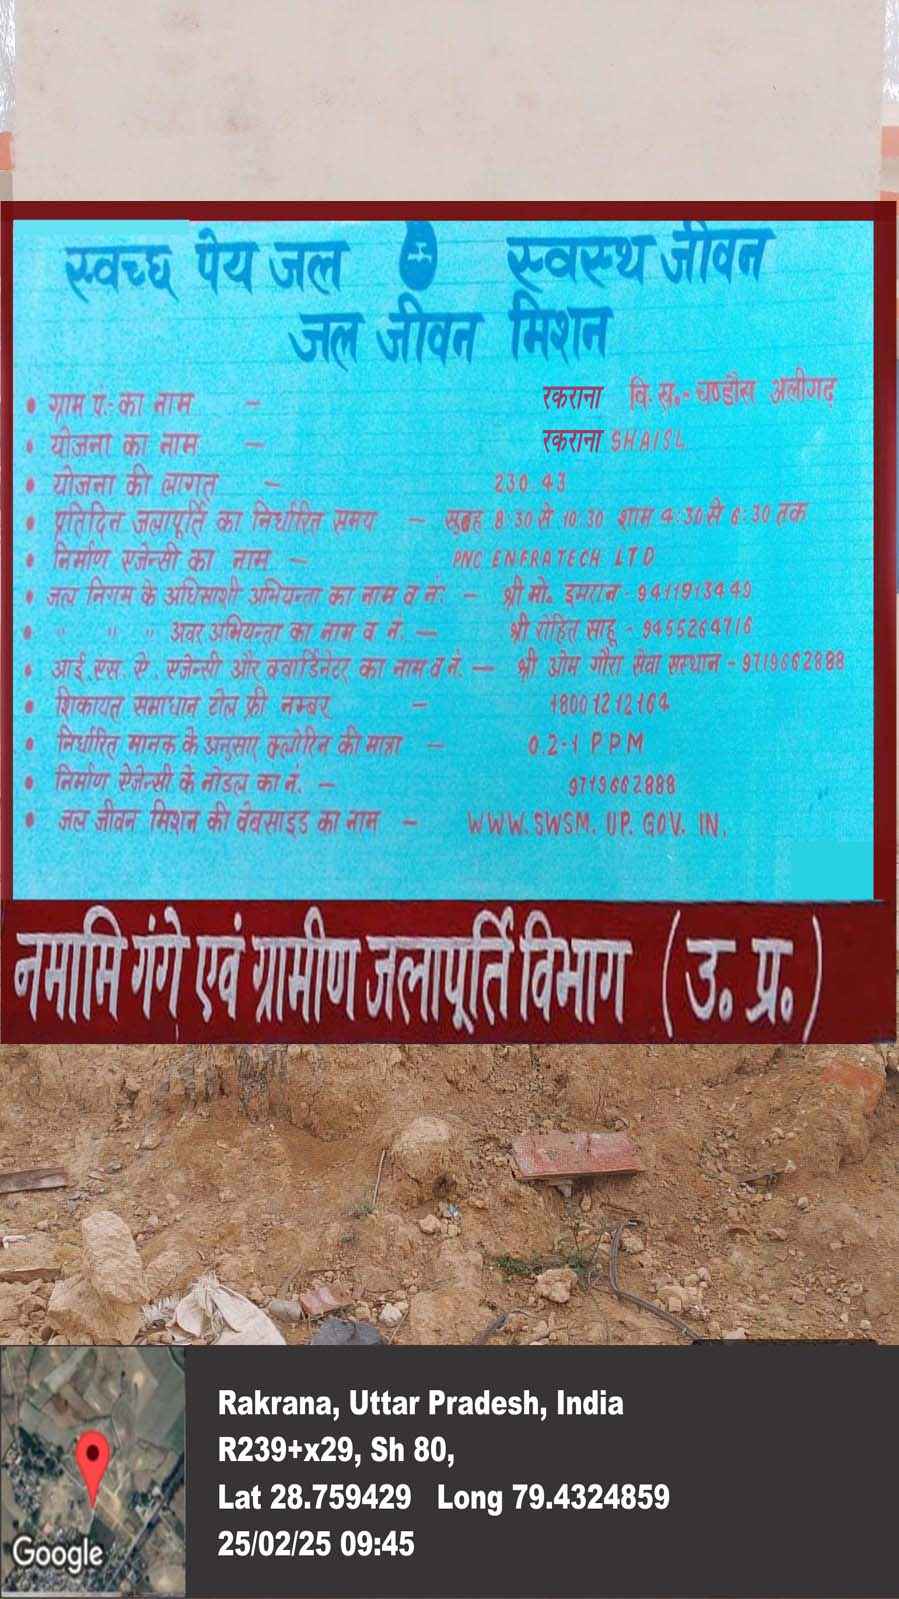 स्वच्छ पेय जल स्वस्थ जीवन
जल जीवन मिशन
• ग्राम पं:-का नाम - रकराना वि.ख.- चण्डौस अलीगढ़
• योजना का नाम - रकराना SHAISL
• योजना की लागत - 230.43
• प्रतिदिन जलापूर्ति का निर्धारित समय - सुबह 8:30 से 10:30 शाम 4:30 से 6:30 तक
• निर्माण एजेन्सी का नाम - PNC ENFRATECH LTD
• जल निगम के अधिसाशी अभियन्ता का नाम व नं. - श्री मो. इमरान - 9411913449
• " " " अवर अभियन्ता का नाम व नं. - श्री रोहित साहू - 9455264716
• आई.एस.ए. एजेन्सी और क्वार्डिनेटर का नाम व नं. - श्री ओम गौरा सेवा सस्थान - 9719662888
• शिकायत समाधान टोल फ्री नम्बर - 18001212164
• निर्धारित मानक के अनुसार क्लोरिन की मात्रा - 0.2-1 PPM
• निर्माण ऐजेन्सी के नोडल का नं. - 9719662888
• जल जीवन मिशन की वेबसाइड का नाम - WWW.SWSM.UP.GOV.IN.
नमामि गंगे एवं ग्रामीण जलापूर्ति विभाग (उ. प्र.)
Rakrana, Uttar Pradesh, India
R239+x29, Sh 80,
Lat 28.759429 Long 79.4324859
25/02/25 09:45
Google